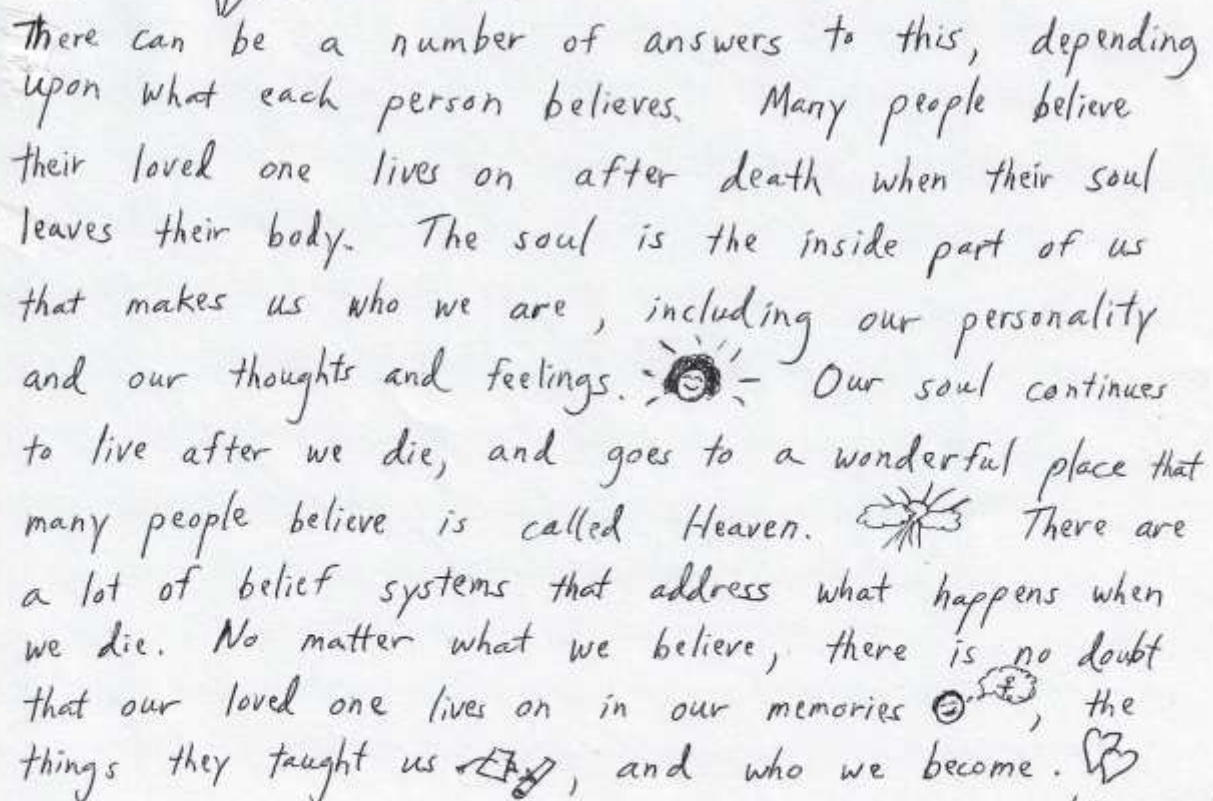 There can be a number of answers to this, depending
upon what each person believes. Many people believe
their loved one lives on after death when their soul
leaves their body. The soul is the inside part of us
that makes us who we are, including our personality
and our thoughts and feelings. Our soul continues
to live after we die, and goes to a wonderful place that
many people believe is called Heaven. There are
a lot of belief systems that address what happens when
we die. No matter what we believe, there is no doubt
that our loved one lives on in our memories, the
things they taught us, and who we become.